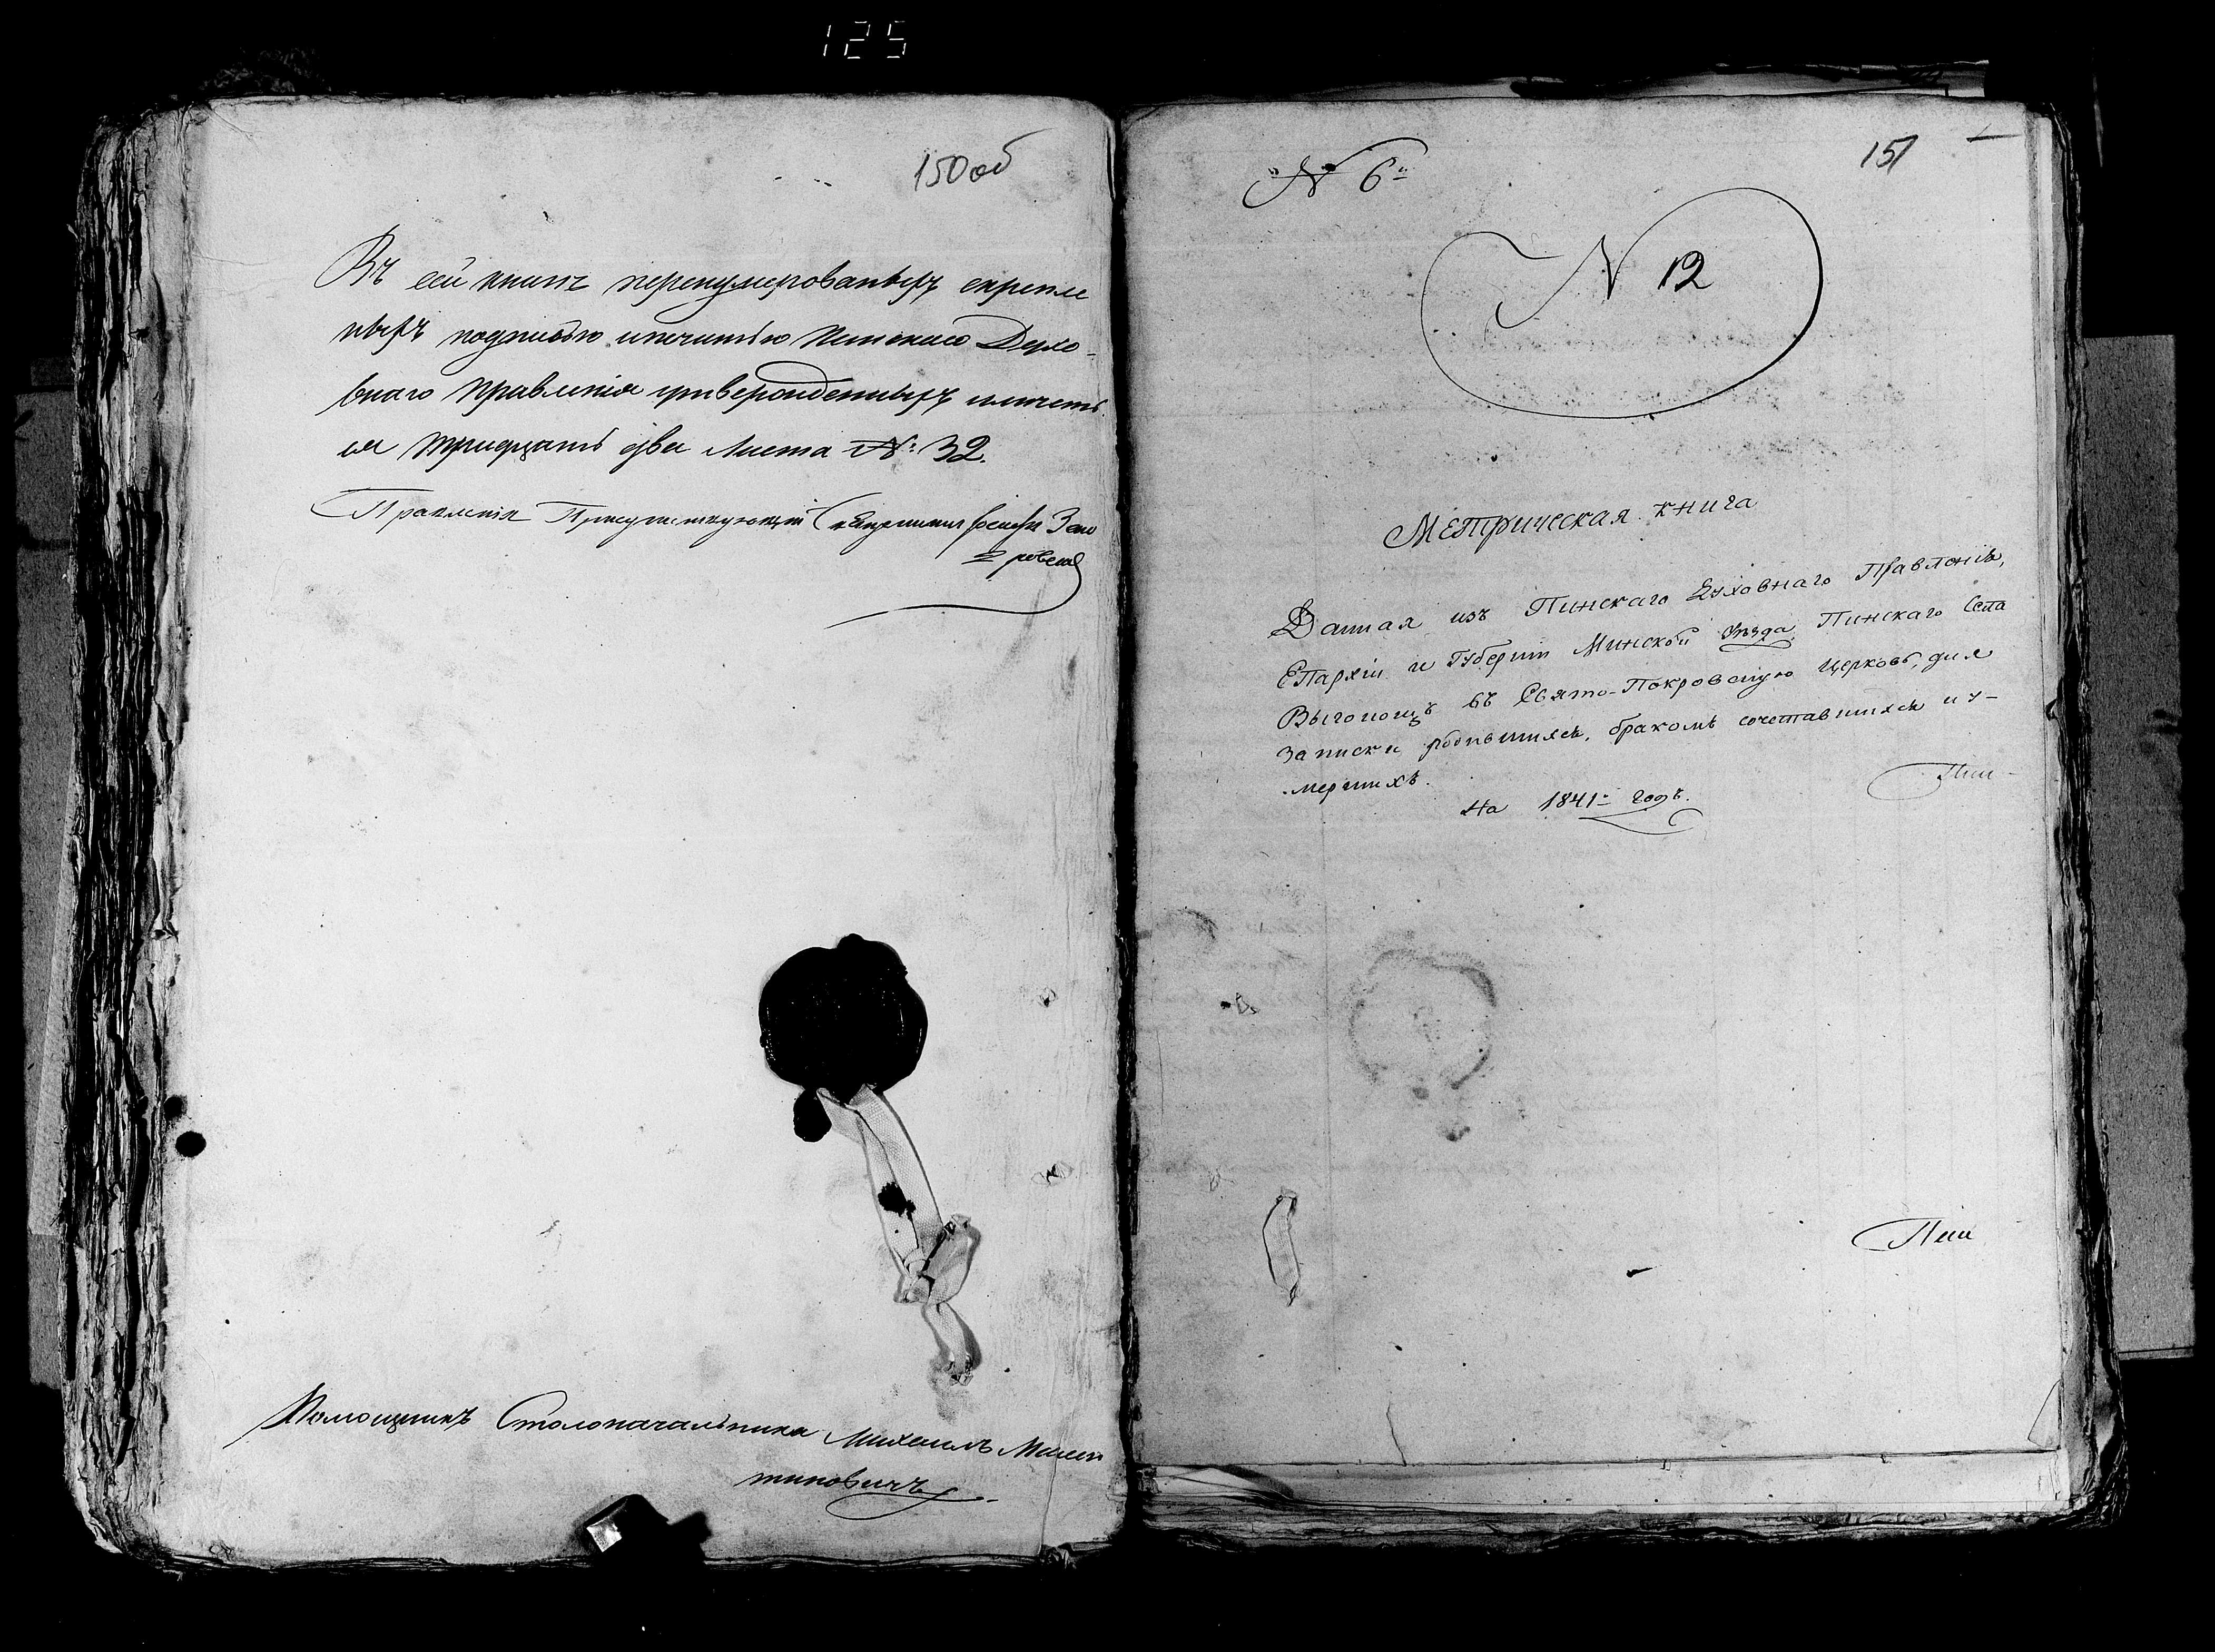 125
150 об
Въ сей книгѣ перенумерованныхъ скрепле
ныхъ подписью и печатью Пинскаго Духо-
внаго Правленія утвержденныхъ имѣетъ
ся тридцать два листа №: 32.
Правленія Присутствующій Священникъ
Помощникъ Столоначальника Михаилъ
тиновичъ
151
"№ 6"
№ 12
Метрическая книга
Данная изъ Пинскаго Духовнаго Правленія,
Епархіи и Губерніи Минской Уѣзда Пинскаго Села
Выгонощъ въ Свято-Покровскую Церковь, для
записки родившихся, бракомъ сочетавшихся и у-
мершихъ.
На 1841: годъ.
Пин-
Пин